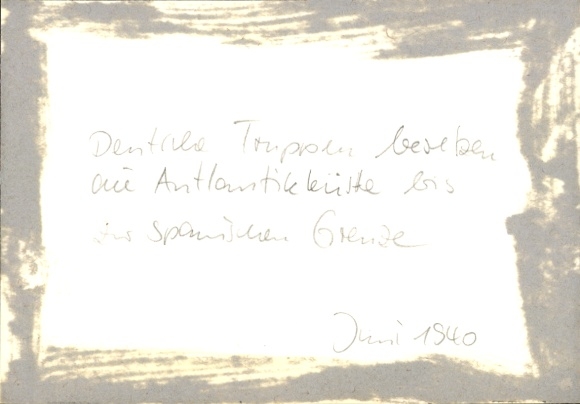 Deutsche Truppen besetzen
die Antlantikküste bis
zur spanischen Grenze
Juni 1940